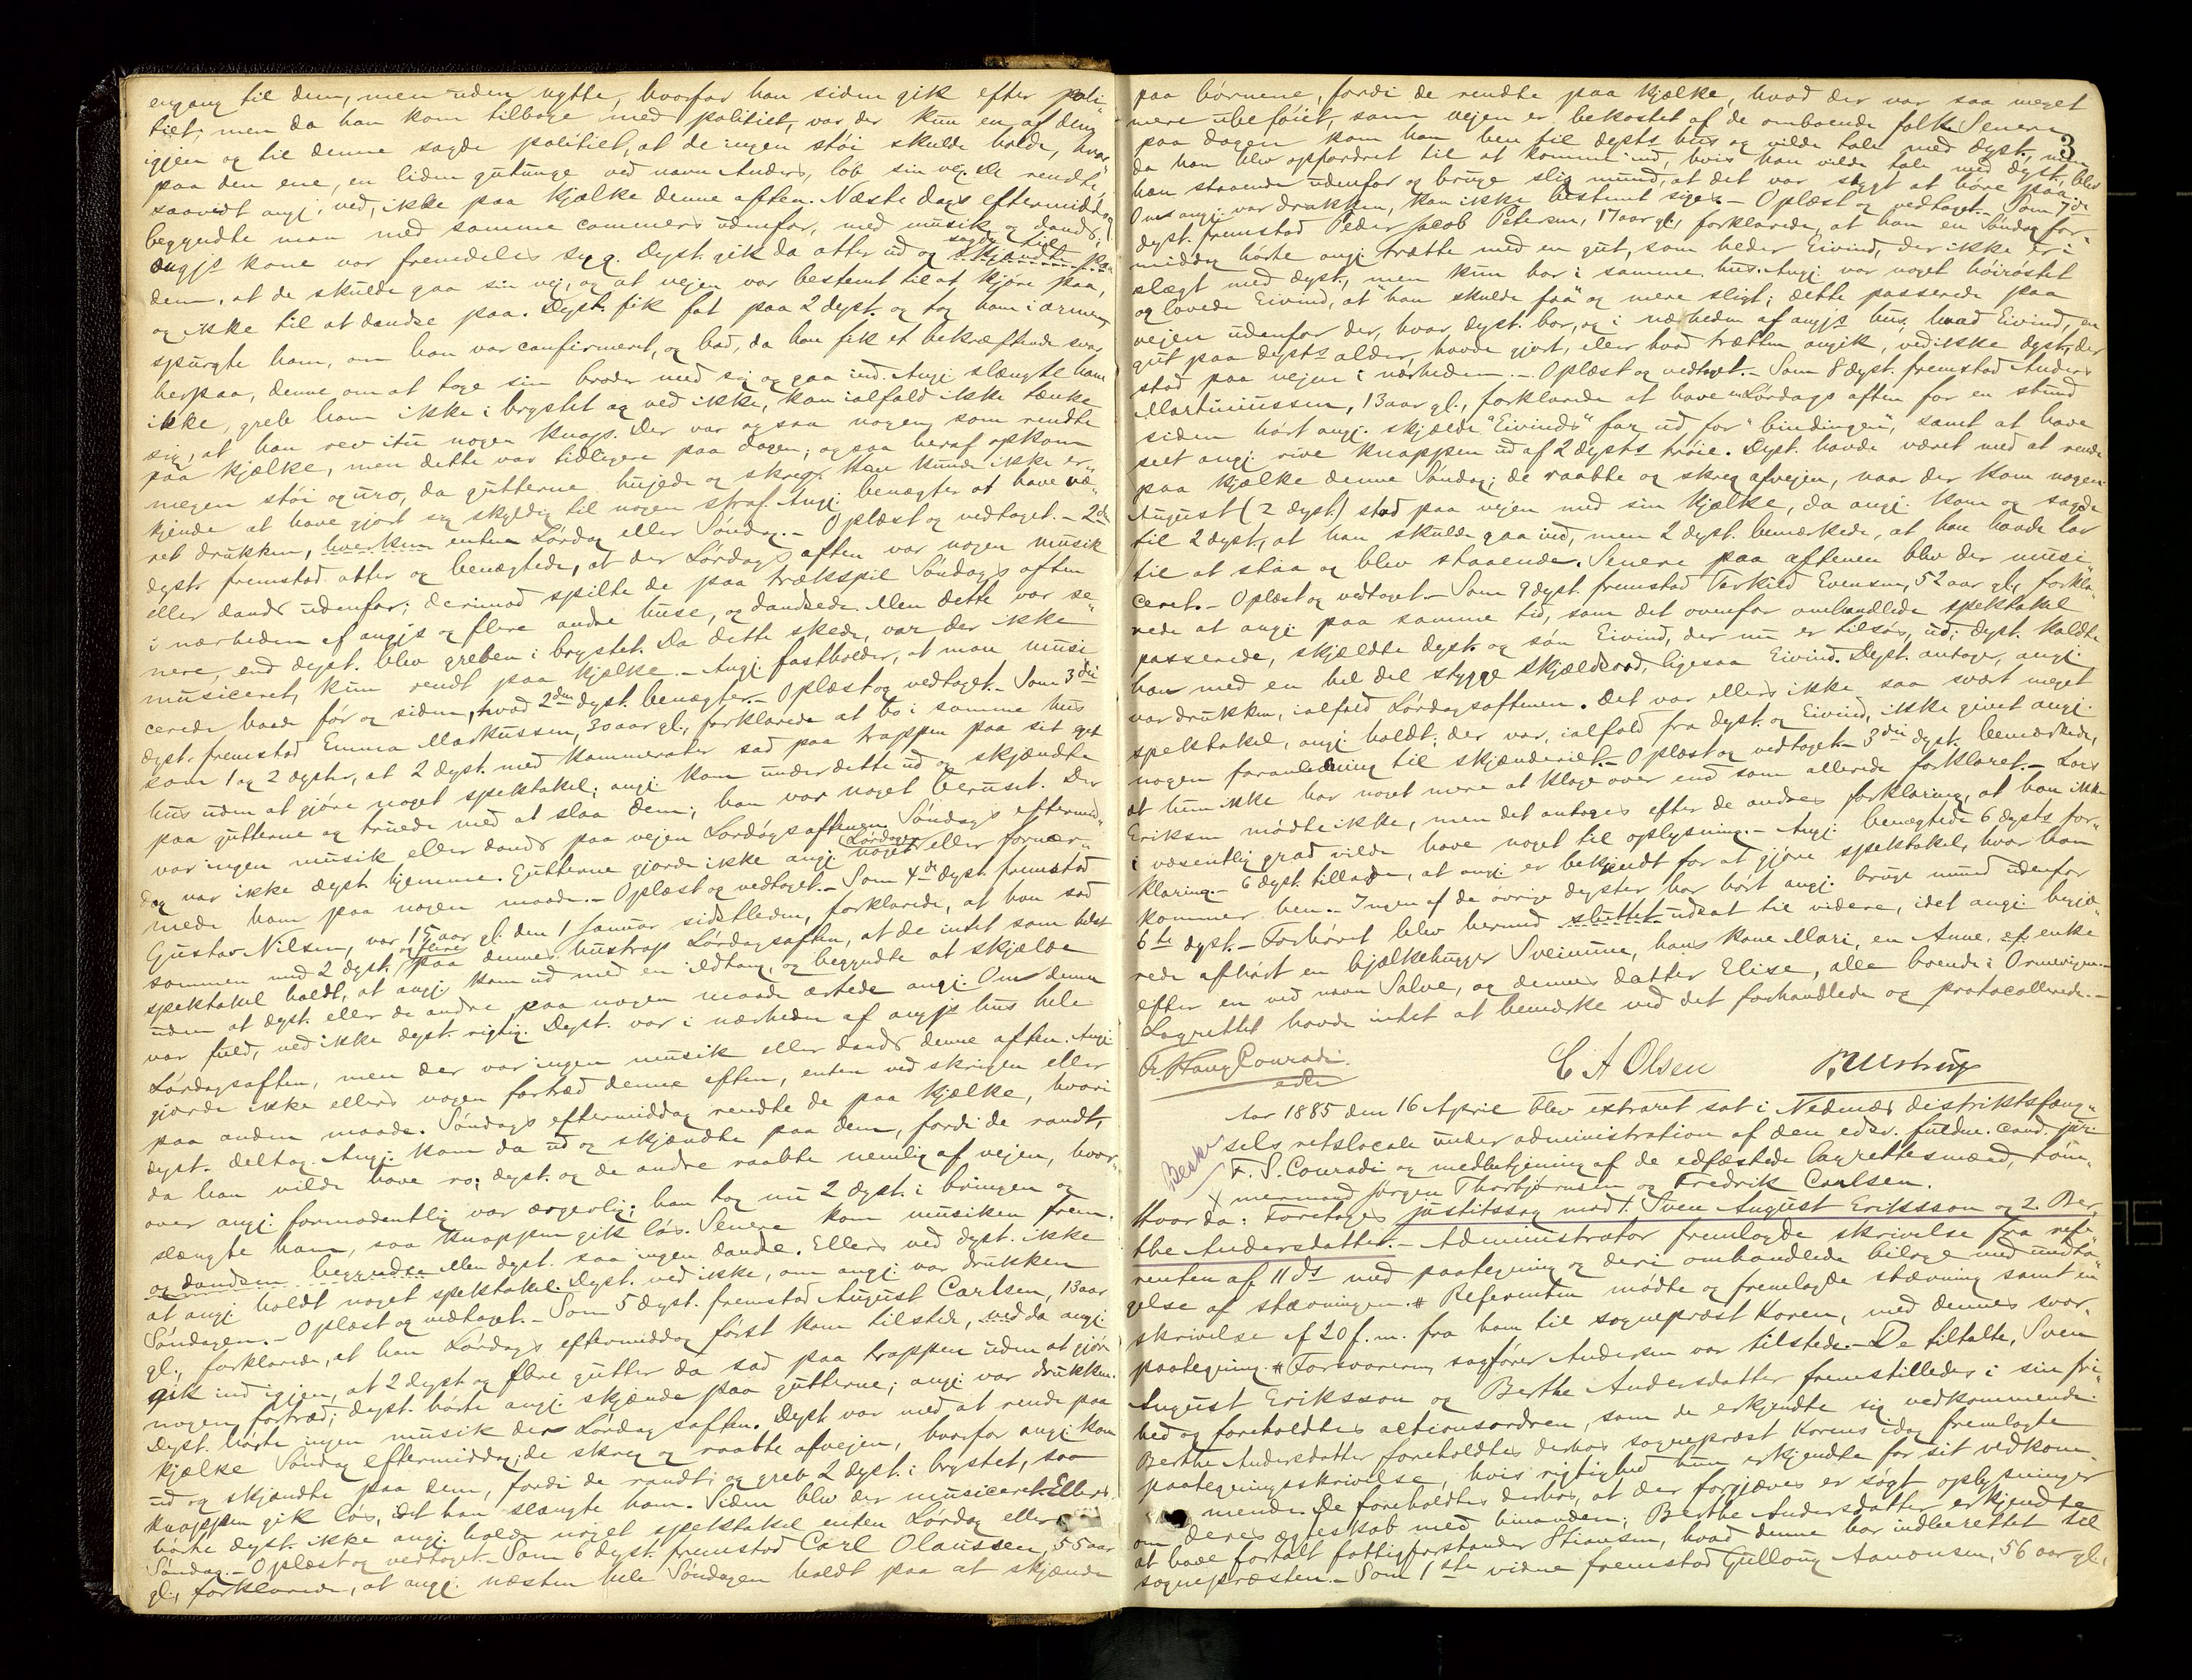 engang til dem, men uden nytte, hvorfor han siden gik efter poli-
tiet; men da han kom tilbage med politiet, var der kun en af dem
igjen og til denne sagde politiet, at de ingen støi skulde holde, hvor-
paa den ene, en liden gutunge ved navn Anders, løb sin vej. De rendte,
saavidt angj. ved, ikke paa kjælke denne aften. Næste dags eftermiddag
begyndte man med samme commers udenfor, med musik og dands;
angjs kone var fremdeles syg. Dyst. gik da atter ud og sagde til
dem, at de skulde gaa sin vej, og at vejen var bestemt til at kjøre paa,
og ikke til at dandse paa. Dyst. fik fat paa 2 dyst. og tog ham i armen,
spurgte ham, om han var confirmeret, og bad, da han fik et bekræftende svar
herpaa, denne om at tage sin broder med sig og gaa ind. Angj. slængte ham
ikke, greb ham ikke i brystet og ved ikke, kan ialfald ikke tænke
sig, at han rev itu nogen knap. Der var ogsaa nogen, som rendte
paa kjælke, men dette var tidligere paa dagen; ogsaa heraf opkom
megen støi og uro, da gutterne hujede og skreg. Han kunde ikke er-
kjende at have gjort sig skyldig til nogen straf. Angj. benægter at have væ-
ret drukken, hverken enten Lørdag eller Søndag.- Oplæst og vedtaget.- 2den
dyst. fremstod atter og benægtede, at der Lørdags aften var nogen musik
eller dands udenfor; derimod spilte de paa trækspil Søndags aften
i nærheden af angjs og flere andre huse, og dandsede. Men dette var se-
nere, end dyst. blev greben i brystet. Da dette skede, var der ikke
musiceret, kun rendt paa kjælke.- Angj. fastholder, at man musi
cerede baade før og siden, hvad 2den dyst. benægter.- Oplæst og vedtaget.- Som 3die
dyst. fremstod Emma Markussen, 30 aar gl., forklarede at bo i samme hus
som 1 og 2 dyster, at 2 dyst. med kammerater sad paa trappen paa sit eget
hus uden at gjøre noget spektakel; angj. kom under dette ud og skjændte
paa gutterne og truede med at slaa dem; han var noget beruset. Der
var ingen musik eller dands paa vejen Lørdagsaftenen. Søndags eftermid-
dag var ikke dyst. hjemme. Gutterne gjorde ikke angj. noget (Lørdagen) eller fornær-
mede ham paa nogen maade.- Oplæst og vedtaget.- Som 4de dyst. fremstod
Gustav Nilsen, var 15 aar gl. den 1 Januar sidstleden, forklarede, at han sad
sammen med 2 dyst. og flere paa dennes hustrap Lørdagsaften, at de intet som helst
spektakel holdt, at angj. kom ud med en ildtang, og begyndte at skjælde
uden at dyst. eller de andre paa nogen maade ærtede angj. Om denne
var fuld, ved ikke dyst. rigtig. Dyst. var i nærheden af angjs hus hele
Lørdagsaften, men der var ingen musik eller dands denne aften. Angj.
gjorde ikke ellers nogen fortræd denne aften, enten ved skrigen eller
paa anden maade. Søndags eftermiddag rendte de paa kjælke, hvori
dyst. deltog. Angj. kom da ud og skjændte paa dem, fordi de randt,
da han vilde have ro; dyst. og de andre raabte nemlig af vejen, hvor-
over angj. formodentlig var ærgerlig; han tog nu 2 dyst. i bringen og
slængte ham, saa knappen gik løs. Senere kom musiken frem
og dandsen begyndte. Men dyst. saa ingen dandse. Ellers ved dyst. ikke
at angj. holdt noget spektakel. Dyst. ved ikke, om angj. var drukken
Søndagen.- Oplæst og vedtaget.- Som 5 dyst. fremstod August Carlsen, 13 aar
gl., forklarede, at han Lørdags eftermiddag først kom tilstede, ved da angj.
gik ind igjen, at 2 dyst. og flere gutter da sad paa trappen uden at gjøre
nogen fortræd; dyst. hørte angj. skjænde paa gutterne; angj. var drukken.
Dyst. hørte ingen musik der Lørdagsaften. Dyst. var med at rende paa
kjælke Søndag eftermiddag; de skreg og raabte afvejen, hvorfor angj. kom
ud og skjændte paa dem, fordi de randt; og greb 2 dyst. i brystet, saa
knappen gik løs, idet han slængte ham. Siden blev der musiceret. Ellers
hørte dyst. ikke angj. holde noget spektakel enten Lørdag eller
Søndag.- Oplæst og vedtaget.- Som 6 dyst. fremstod Carl Olaussen, 55 aar
gl., forklarede, at angj. næsten hele Søndagen holdt paa at skjænde
3
paa børnene, fordi de rendte paa kjælke, hvad der var saa meget
mere ubeføiet, som vejen er bekostet af de omboende folk. Senere
paa dagen kom han hen til dysts hus og vilde tale med dyst. men
da han blev opfordret til at komme ind, hvis han vilde tale med dyst, blev
han staaende udenfor og bruge slig mund, at det var stygt at høre paa.
Om angj. var drukken, kan ikke bestemt siges.- Oplæst og vedtaget.- Som 7de
dyst. fremstod Peder Jacob Petersen, 17 aar gl., forklarede, at han en Søndag for-
middag hørte angj. trætte med en gut, som heder Eivind, der ikke er i
slægt med dyst., men kun bor i samme hus. Angj. var noget høirøstet
og lovede Eivind, at "han skulde faa" og mere sligt; dette passerede paa
vejen udenfor der, hvor dyst. bor, og i nærheden af angjs hus, hvad Eivind, en
gut paa dysts alder, havde gjort, eller hvad trætten angik, ved ikke dyst., der
stod paa vejen i nærheden.- Oplæst og vedtaget.- Som 8 dyst. fremstod Anders
Martiniussen, 13 aar gl., forklarede at have en Lørdags aften for en stund
siden hørt angj. skjælde "Eivinds" far ud for "bindingen", samt at have
seet angj. rive knappen ud af 2 dysts trøie. Dyst. havde været med at rende
paa kjælke denne Søndag; de raabte og skreg afvejen, naar der kom nogen.
August (2 dyst.) stod paa vejen med sin kjælke, da angj. kom og sagde
til 2 dyst., at han skulde gaa ind, men 2 dyst. bemærkede, at han havde lov
til at staa og blev staaende. Senere paa aftenen blev der musi-
ceret.- Oplæst og vedtaget.- Som 9 dyst. fremstod Terkild Evensen, 52 aar gl., forkla-
rede at angj. paa samme tid, som det ovenfor omhandlede spektakel
passerede, skjældte dyst. og søn Eivind, der nu er tilsøs, ud; dyst. kaldte
han med en hel del stygge skjældsord, ligesaa Eivind. Dyst. antager, angj.
var drukken, ialfald Lørdagsaftenen. Det var ellers ikke saa svært meget
spektakel, angj. holdt; der var, ialfald fra dyst. og Eivind, ikke givet angj.
nogen foranledning til skjænderiet.- Oplæst og vedtaget.- 3die dyst. bemærkede,
at hun ikke har noget mere at klage over end som allerede forklaret.- Lars
Eriksen mødte ikke, men det antages efter de andres forklaring, at han ikke
i væsentlig grad vilde have noget til oplysning.- Angj. benægtede 6 dysts for-
klaring.- 6 dyst. tillagde, at angj. er bekjendt for at gjøre spektakel, hvor han
kommer hen.- Ingen af de øvrige dyster har hørt angj. bruge mund udenfor
6te dyst.- Forhøret blev hermed sluttet udsat til videre, idet angj. begjæ-
rede afhørt en bjælkehugger Sveinung, hans kone Mari, en Anne, ef. enke
efter en ved navn Salve, og dennes datter Elise, alle boende i Ormevigen.-
Lagrettet havde intet at bemærke ved det forhandlede og protocollerede.-
Fr. Haug Conradi
edsv.
C A Olsen
Aar 1885 den 16 April blev extraret sat i Nedenæs distriktsfæng-
sels retslocale under administration af den edsv. fuldm. cand. juris
F. S. Conradi og medbetjening af de edfæstede lagrettesmænd, tøm-
mermand Jørgen Thorbjørnsen og Fredrik Carlsen.
Hvorda: Foretages justitssag mod 1. Sven August Eriksson og 2. Ber-
the Andersdatter.- Administrator fremlagde skrivelse fra refe-
renten af 11 ds med paategning og deri omhandlede bilage med undta-
gelse af stævningen.# Referenten mødte og fremlagde stævning samt en
skrivelse af 20 f.m. fra ham til sogneprest Koren, med dennes svar-
paategning.# Forsvareren, sagfører Andersen var tilstede.- De tiltalte, Sven
August Eriksson og Berthe Andersdatter fremstilledes i sin fri-
hed og foreholdtes actionsordren, som de erkjendte sig vedkommende.
Berthe Andersdatter foreholdtes derhos sogneprest Korens idag fremlagte
paategningsskrivelse, hvis rigtighed hun erkjendte for sit vedkom-
mende. De foreholdtes derhos, at der forgjæves er søgt oplysninger
om deres ægteskab med hinanden; Berthe Andersdatter erkjendte
at have fortalt fattigforstander Stiansen, hvad denne har indberettet til
sognepresten.- Som 1ste vidne fremstod Gullaug Aanonsen, 56 aar gl.,